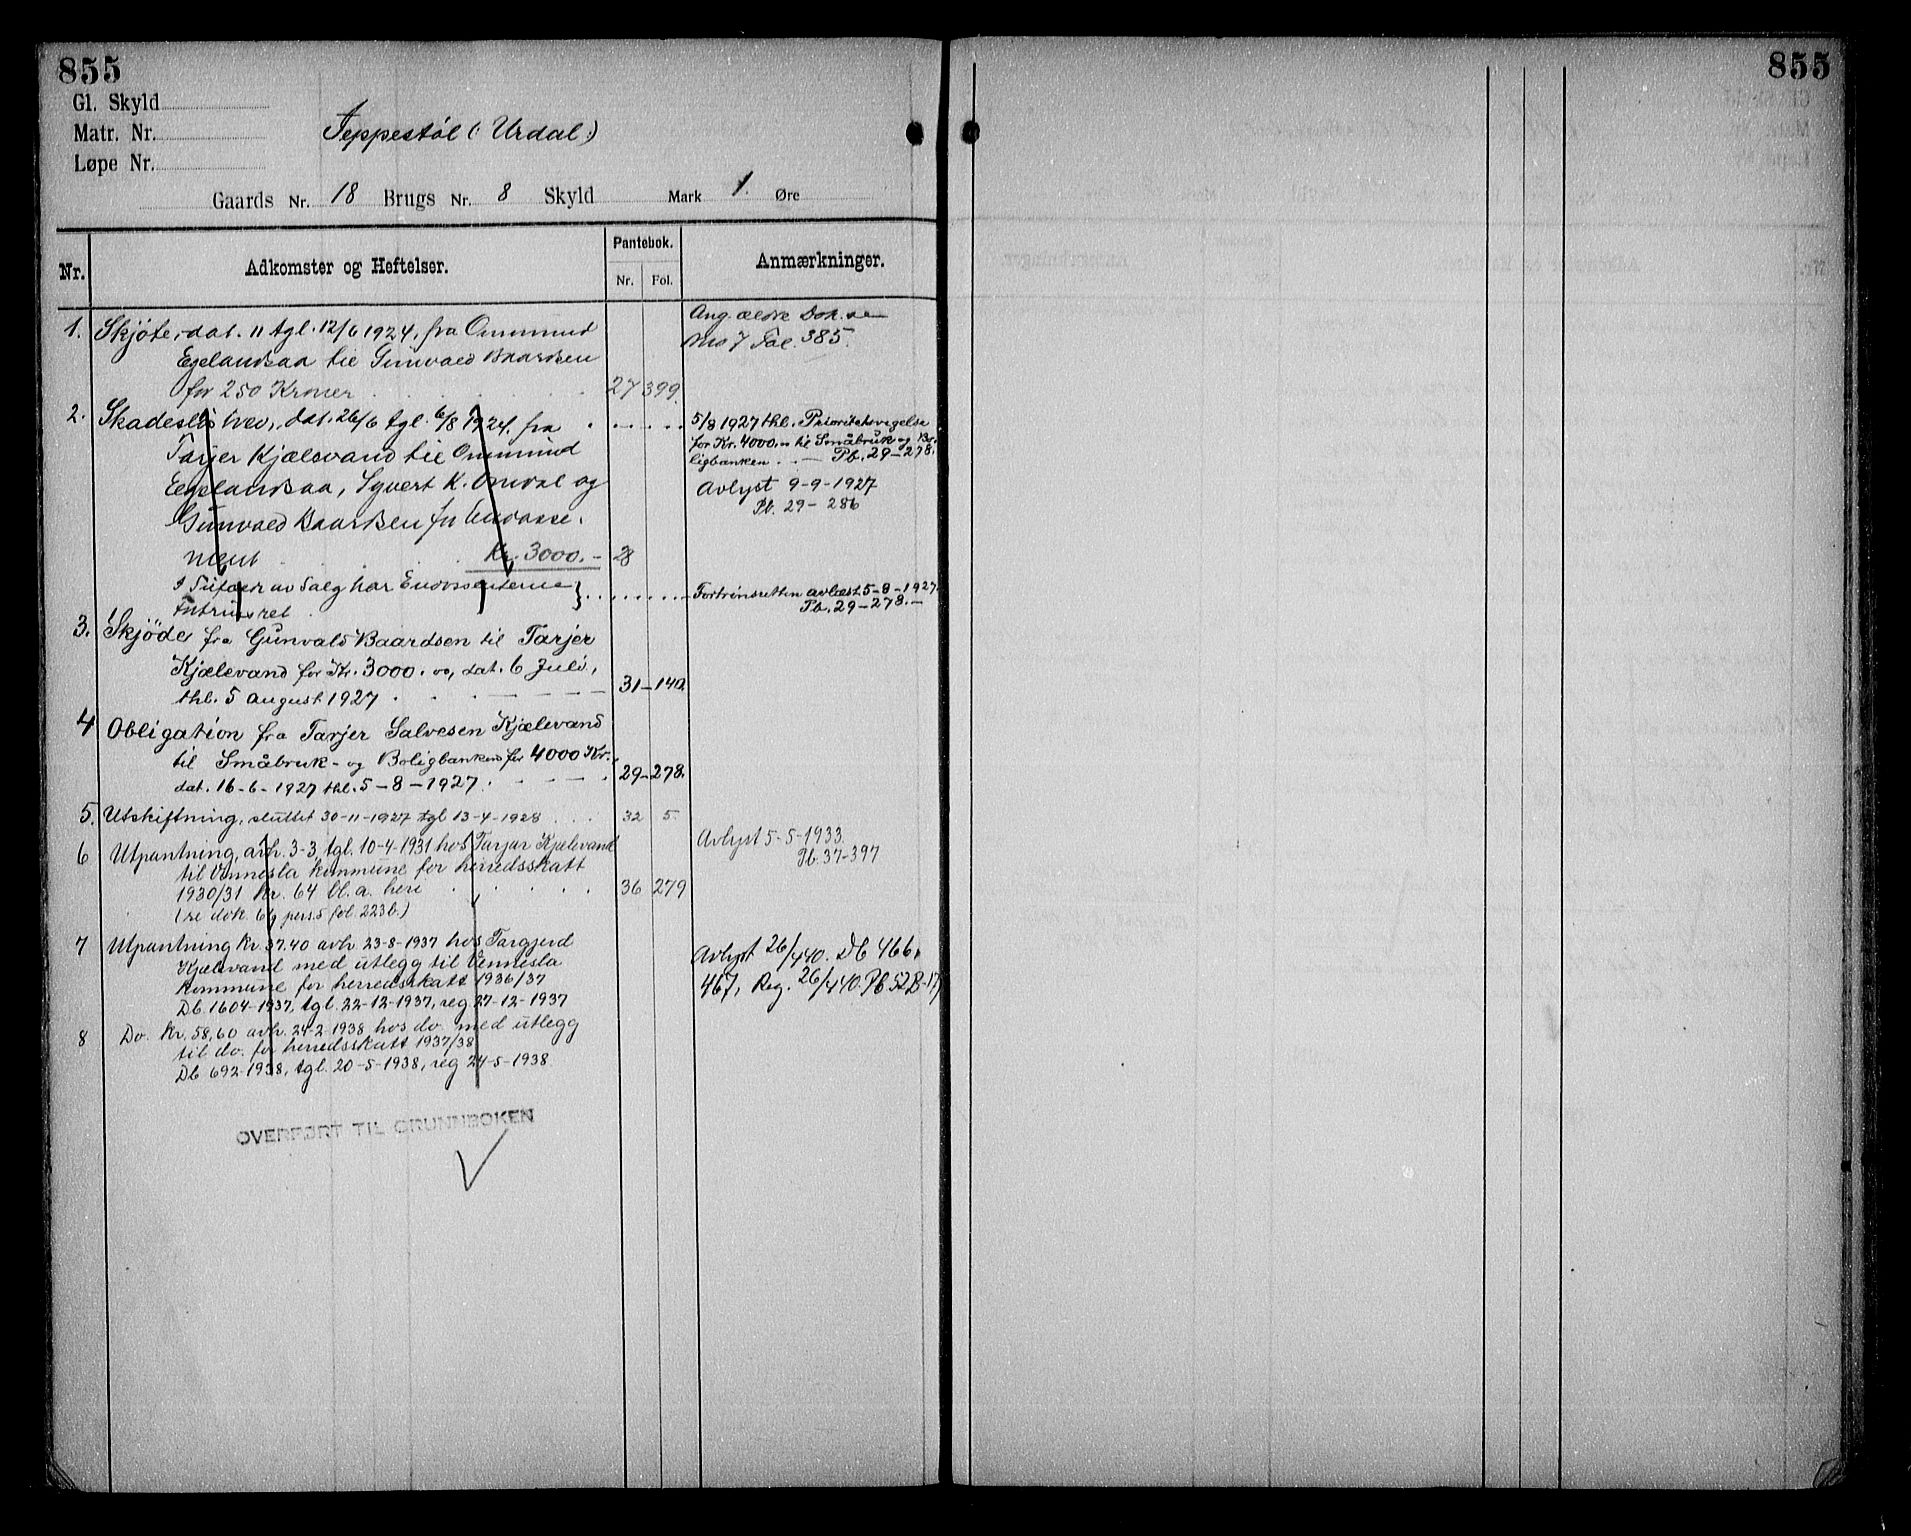 855
855
Gl. Skyld
Matr. Nr.
Løpe Nr.
Teppestøl (: Urdal:)
Gaards Nr. 18 Brugs Nr. 8 Skyld Mark 1. Øre
Nr.
Adkomster og Heftelser.
Pantebok.
Nr. Fol.
Anmærkninger.
1. Skjøte, dat. 11 tgl. 12/6 1924, fra Ommund
Egelandsaa til Gunvald Baardsen
for 250 Kroner 27 399.
Ang. ældre Dok. se
No 7 Fol. 385.
2. Skadesløsbrev, dat. 26/6 tgl. 6/8 1924, fra
Tarjer Kjælevand til Ommund
Egelandsaa, Syvert K. Omdal og
Gunvald Baardsen for Endosse-
ment Kr. 3000.- 28
5/8 1927 thl. Prioritetsvigelse
for Kr. 4000.- til Småbruk og Bo-
ligbanken . . — Pb. 29-278.
Avlyst 9-9-1927
Pb. 29-286
I Tilfælde av Salg har Endossenterne }
Fortrinsret.
Fortrinsretten avlæst 5-8-1927.
Pb. 29-278.-
3. Skjøde fra Gunvald Baardsen til Tarjer
Kjælevand for Kr. 3000.00, dat. 6 Juli,
thl. 5 august 1927 31-140.
4 Obligation fra Tarjer Salvesen Kjælevand
til Småbruk- og Boligbanken for 4000 Kr.
dat. 16-6-1927 thl. 5-8-1927. 29-278.
5. Utskiftning, sluttet 30-11-1927 tgl 13-4-1928 32 5.
6 Utpantning, avh. 3-3, tgl. 10-4-1931 hos Tarjer Kjælevand
til Vennesla kommune for herredsskatt
1930/31 kr. 64 bl. a. heri 36 279
(se dok. 6 pers. 5 fol. 223b.)
Avlyst 5-5-1933.
Pb. 37-397
7 Utpantning kr. 37.40 avh 23-8-1937 hos Targjerd
Kjælevand med utlegg til Vennesla
Kommune for herredsskatt 1936/37
Db. 1604-1937, tgl. 22-12-1937, reg 27-12-1937
Avlyst 26/4 40. Db 466 
467, Reg. 26/4 40. Pb 52B-17
8 Do. kr. 58,60 avh. 24-2-1938 hos do. med utlegg
til do. for herredsskatt 1937/38
Db 692-1938, tgl. 20-5-1938, reg 24-5-1938
OVERFØRT TIL GRUNNBOKEN